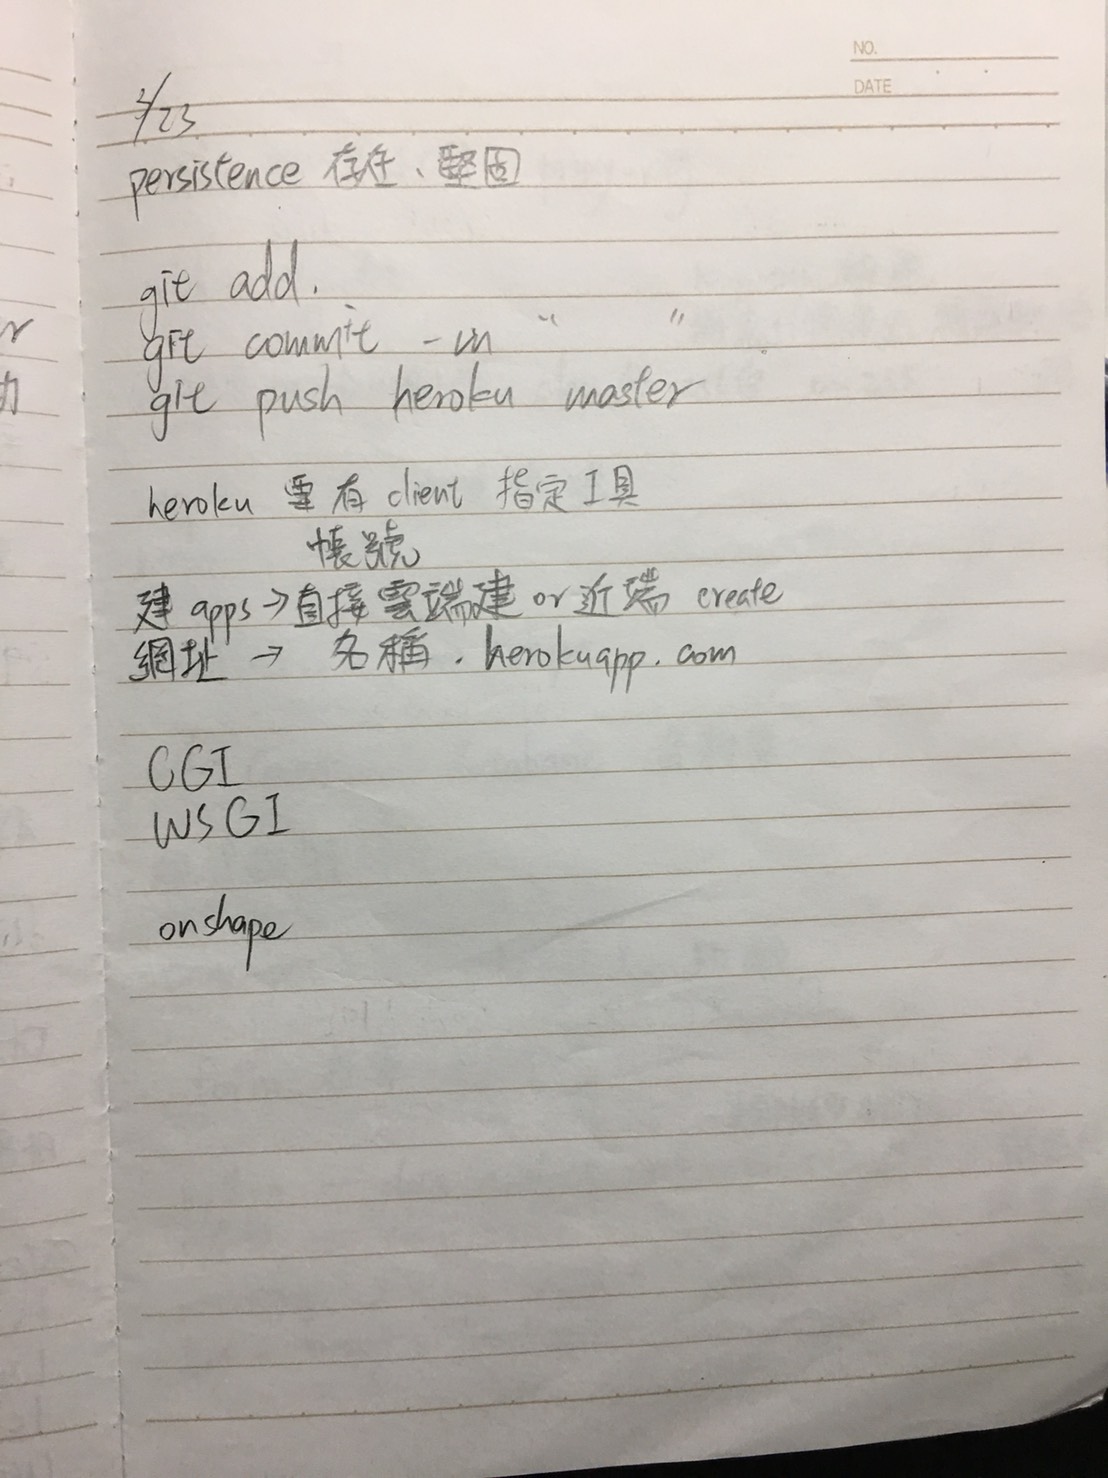 NO.
DATE
2/23
persistence 存在、堅固
git add.
git commit -m “ ”
git push heroku master
heroku 需有 client 指定工具
帳號
建 apps → 直接雲端建 or 近端 create
網址 → 名稱.herokuapp.com
CGI
WSGI
onshape